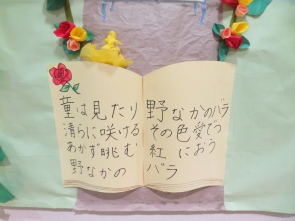 童は見たり
清らに咲ける
あかず眺む
野なかの
野なかのバラ
その色愛でつ
紅におう
バラ